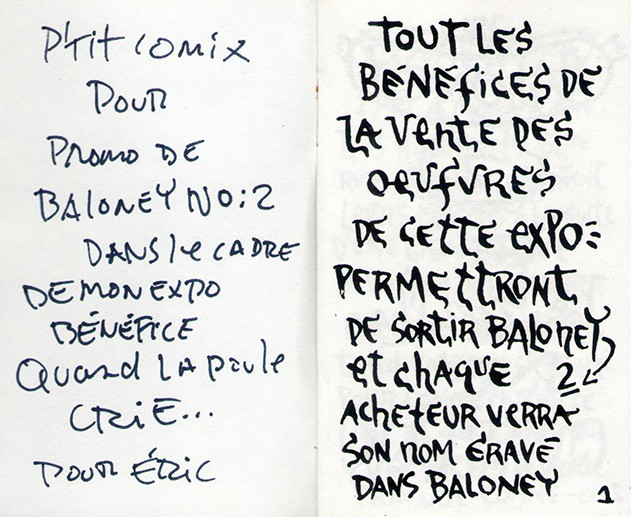 P'tit comix
Pour
Promo de
Baloney No: 2
dans le cadre
de mon expo
bénéfice
Quand la poule
crie...
pour Éric
TOUT LES
BÉNÉfices DE
LA Vente DES
OEUfVRES
DE CETTE EXPO:
PERMETTRONT
DE SORTIR BALONEY
et chaque 2
ACHETEUR VERRA
SON NOM GRAVÉ
DANS BALONEY
1